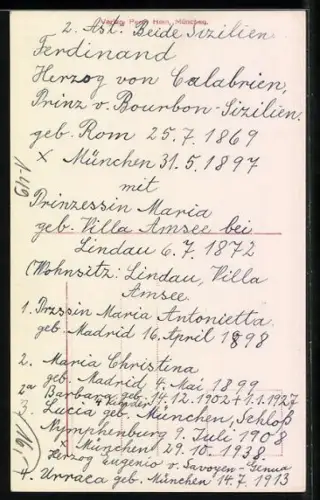 Verlag Percy Hein, München.
2. Ast: Beide Sizilien
Ferdinand
Herzog von Calabrien,
Prinz v. Bourbon-Sizilien,
geb. Rom 25.7.1869
x München 31.5.1897
mit
Prinzessin Maria
geb. Villa Amsee bei
Lindau 6.7.1872
(Wohnsitz: Lindau, Villa
Amsee.
1. Przssin Maria Antonietta
geb. Madrid 16. April 1898
2. Maria Christina
geb. Madrid 4. Mai 1899
2a Barbara geb. 14.12.1902 + 1.1.1927
3. Lucia geb. München, Schloß
Nymphenburg 9. Juli 1908
x München 29.10.1938.
Herzog Eugenio v. Savoyen-Genua
4. Urraca geb. München 14.7.1913